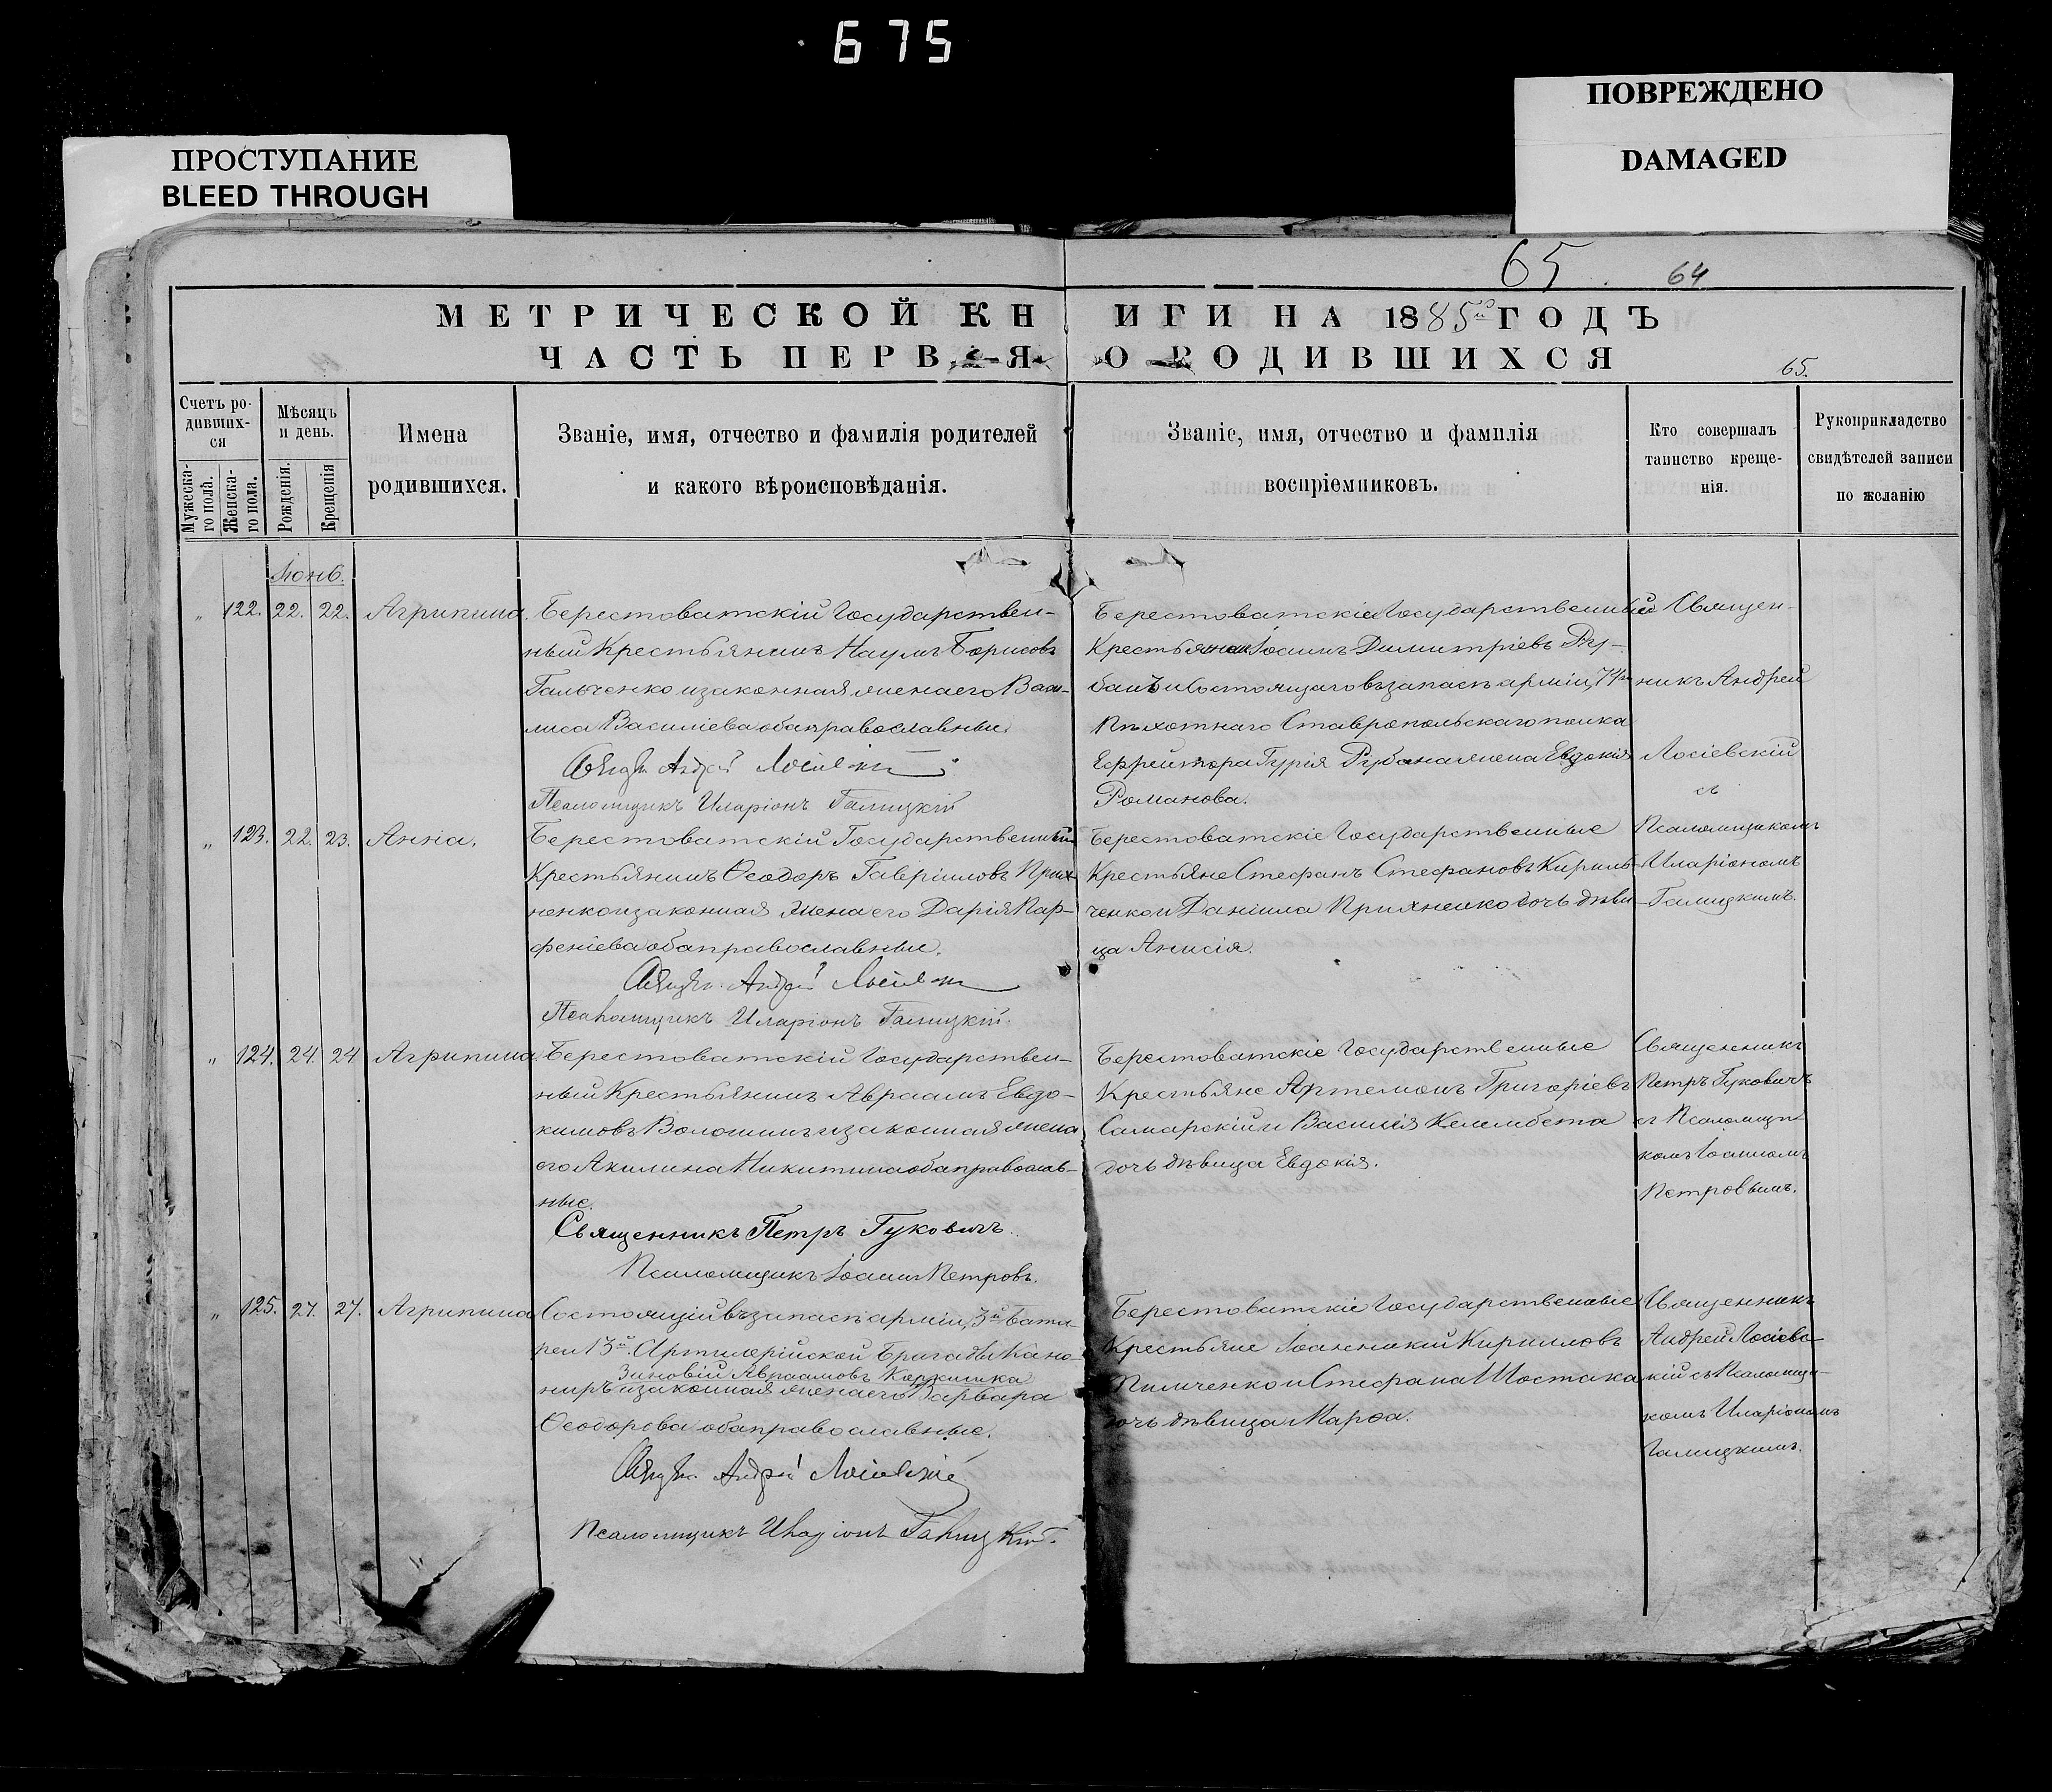 675
ПОВРЕЖДЕНО
DAMAGED
ПРОСТУПАНИЕ
BLEED THROUGH
65. 64
МЕТРИЧЕСКОЙ КНИГИ НА 1885й ГОДЪ
ЧАСТЬ ПЕРВАЯ О РОДИВШИХСЯ
65.
Счетъ ро-
дивших-
ся
Мужеска-
го пола.
Женска-
го пола.
Мѣсяцъ
и день.
Рожденія.
Крещенія
Имена
родившихся.
Званіе, имя, отчество и фамилія родителей
и какого вѣроисповѣданія.
Званіе, имя, отчество и фамилія
воспріемниковъ.
Кто совершалъ
таинство креще-
нія.
Рукоприкладство
свидѣтелей записи
по желанію
Іюнь.
„ 122. 22. 22. Агрипина.
Берестоватскій Государствен-
ный Крестьянинъ Наумъ Борисовъ
Гальченко и законная жена его Васи-
лиса Василіева оба православные.
Андрей
Псаломщикъ Иларіонъ Галицкій
Берестоватскіе Государственный
Крестьянинъ Іоаннъ Димитріевъ Ру-
банъ и Состоящаго въ запасѣ арміи, 74го
Пѣхотнаго Ставропольскаго полка
Ефрейтора Гурія Рубана жена Евдокія
Романова.
Священ-
никъ Андрей
Лосіевскій
съ
Псаломщикомъ
Иларіономъ
Галицкимъ.
„ 123. 22. 23. Анна.
Берестоватскій Государственный
Крестьянинъ Ѳеодоръ Гавріиловъ Прих-
ненко и законная жена его Дарія Пар-
феніева оба православные.
Андрей
Псаломщикъ Иларіонъ Галицкій.
Берестоватскіе Государственные
Крестьяне Стефанъ Стефановъ Кирил-
ченко и Даніила Прихненко дочь дѣви-
ца Анисія.
„ 124. 24. 24 Агрипина
Берестоватскій Государствен-
ный Крестьянинъ Авраамъ Евдо-
кимовъ Волошинъ и законная жена
его Акилина Никитина оба православ-
ные.
Священникъ Петръ Гуковичъ.
Псаломщикъ Іоаннъ Петровъ.
Берестоватскіе Государственные
Крестьяне Артемонъ Григоріевъ
Самарскій и Василія Келембета
дочь дѣвица Евдокія.
Священникъ
Петръ Гуковичъ
съ Псаломщи-
комъ Іоанномъ
Петровымъ.
„ 125. 27. 27. Агрипина
Состоящій въ запасѣ арміи, 3й бата-
реи 13й Артилерійской Бригады Кано-
Зиновій Авраамовъ Коржинка
ниръ и законная жена его Варвара
Ѳеодорова оба православные.
Андрей
Псаломщикъ Иларіонъ Галицкій.
Берестоватскіе Государственные
Крестьяне Іоанникій Кирилловъ
Пилипченко и Стефана Шостака
дочь дѣвица Марѳа.
Священникъ
Андрей Лосіевс-
кій съ Псаломщи-
комъ Иларіономъ
Галицкимъ.